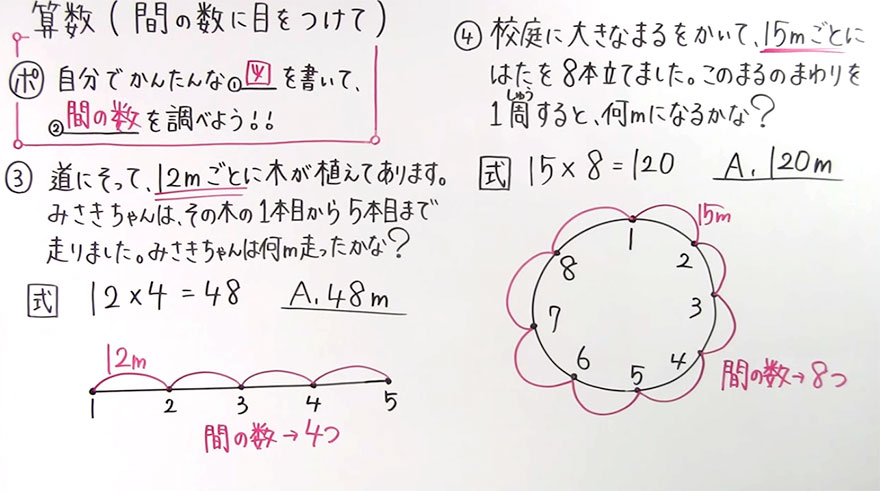 算数(間の数に目をつけて)
ポ 自分でかんたんな①図を書いて、
②間の数を調べよう!!
③ 道にそって、12mごとに木が植えてあります。
みさきちゃんは、その木の1本目から5本目まで
走りました。みさきちゃんは何m走ったかな?
式 12×4=48 A.48m
12m
1 2 3 4 5
間の数→4つ
④ 校庭に大きなまるをかいて、15mごとに
はたを8本立てました。このまるのまわりを
しゅう
1周すると、何mになるかな?
式 15×8=120 A.120m
15m
1
2
3
4
5
6
7
8
間の数→8つ